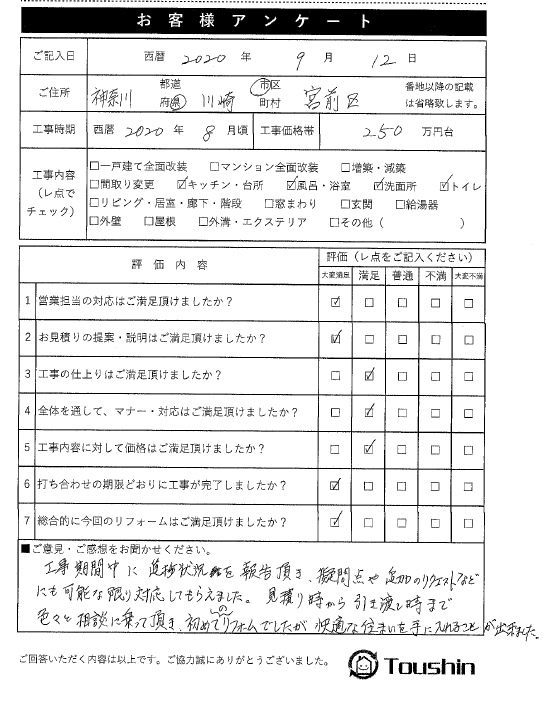 お客様アンケート
ご記入日 西暦 2020 年 9 月 12 日
ご住所 神奈川 都道府県 川崎 市区町村 宮前区 番地以降の記載は省略致します。
工事時期 西暦 2020 年 8 月頃 工事価格帯 250 万円台
工事内容（レ点でチェック）
□一戸建て全面改装 □マンション全面改装 □増築・減築
□間取り変更 ☑キッチン・台所 ☑風呂・浴室 ☑洗面所 ☑トイレ
□リビング・居室・廊下・階段 □窓まわり □玄関 □給湯器
□外壁 □屋根 □外溝・エクステリア □その他（ ）
評価内容 評価（レ点をご記入ください）
大変満足 満足 普通 不満 大変不満
1 営業担当の対応はご満足頂けましたか？ ☑ □ □ □ □
2 お見積りの提案・説明はご満足頂けましたか？ ☑ □ □ □ □
3 工事の仕上りはご満足頂けましたか？ □ ☑ □ □ □
4 全体を通して、マナー・対応はご満足頂けますか？ □ ☑ □ □ □
5 工事内容に対して価格はご満足頂けましたか？ □ ☑ □ □ □
6 打ち合わせの期限どおりに工事が完了しましたか？ ☑ □ □ □ □
7 総合的に今回のリフォームはご満足頂けましたか？ ☑ □ □ □ □
■ご意見・ご感想をお聞かせください。
工事期間中に進捗状況を報告頂き、疑問点や追加のリクエストなど
にも可能な限り対応してもらえました。見積り時から引き渡し時まで
色々と相談に乗って頂き、初めてのリフォームでしたが快適な住まいを手に入れることが出来ました。
ご回答いただく内容は以上です。ご協力誠にありがとうございました。
Toushin